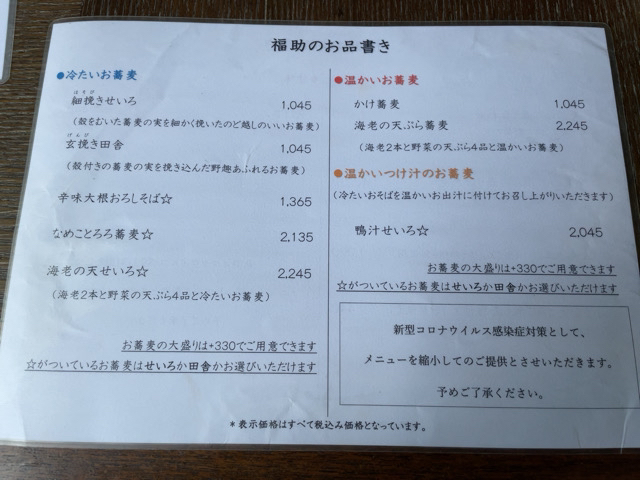 福助のお品書き
●冷たいお蕎麦
細挽きせいろ 1,045
(殻をむいた蕎麦の実を細かく挽いたのど越しのいいお蕎麦)
玄挽き田舎 1,045
(殻付きの蕎麦の実を挽き込んだ野趣あふれるお蕎麦)
辛味大根おろしそば☆ 1,365
なめことろろ蕎麦☆ 2,135
海老の天せいろ☆ 2,245
(海老2本と野菜の天ぷら4品と冷たいお蕎麦)
お蕎麦の大盛りは+330でご用意できます
☆がついているお蕎麦はせいろか田舎かお選びいただけます
●温かいお蕎麦
かけ蕎麦 1,045
海老の天ぷら蕎麦 2,245
(海老2本と野菜の天ぷら4品と温かいお蕎麦)
●温かいつけ汁のお蕎麦
(冷たいおそばを温かいお出汁に付けてお召し上がりいただきます)
鴨汁せいろ☆ 2,045
お蕎麦の大盛りは+330でご用意できます
☆がついているお蕎麦はせいろか田舎かお選びいただけます
新型コロナウイルス感染症対策として、
メニューを縮小してのご提供とさせいただきます。
予めご了承ください。
*表示価格はすべて税込み価格となっています。